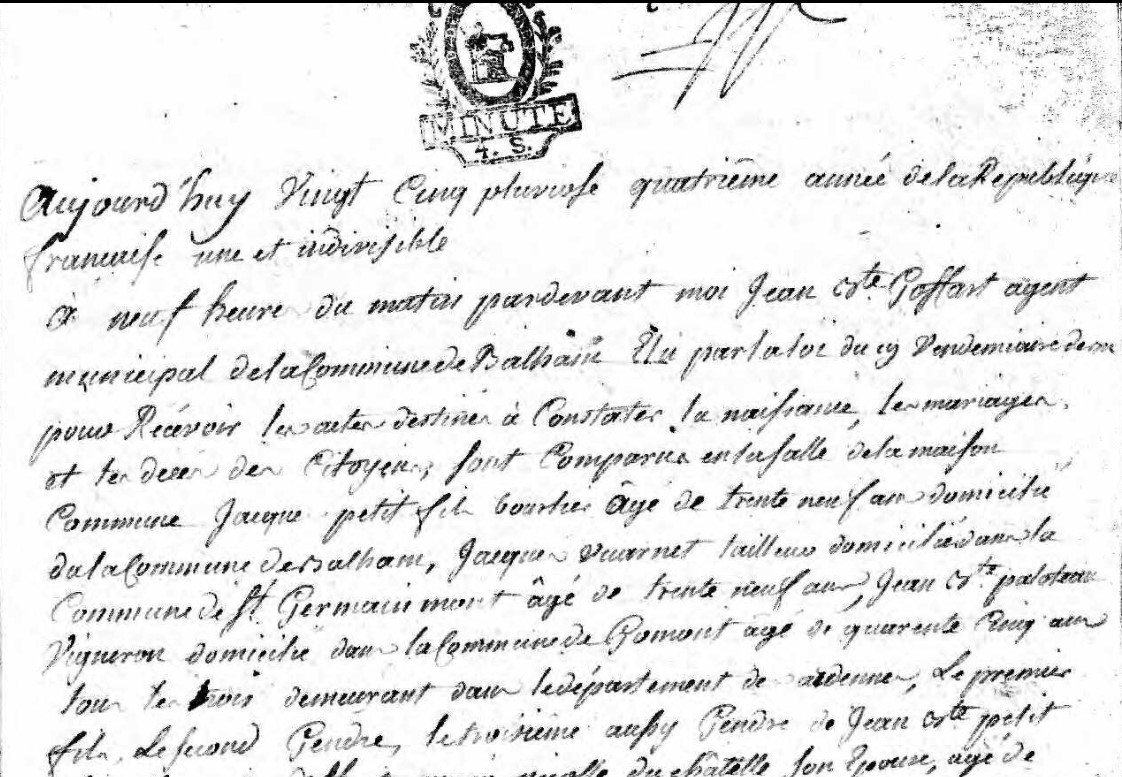 MINUTE
4. S.
Aujourd'huy Vingt Cinq pluviose quatrième année de la République
française une et indivisible
a neuf heure du matin pardevant moi Jean Bte Goffart agent
municipal de la Commune de Balham Élu par la loi du 19 Vendemiaire dernier
pour Recevoir les actes destinés à Constater la naissance, les mariages
et les décés des Citoyens, sont Comparus en la salle de la maison
Commune Jacque petit fils âgé de trente neuf ans domicilié
da la Commune de Balham, Jacques vuarnet tailleur domicilié dans la
Commune de St Germainmont âgé de trente neuf ans, Jean Bte paloteau
Vigneron domicilié dans la Commune de Gomont agé de quarente Cinq ans
tous les trois demeurant dans le département des ardennes, Le premier
fils, Le second Gendre, le troisieme aussy Gendre de Jean Bte petit
du chatelle son Epouse, agé de